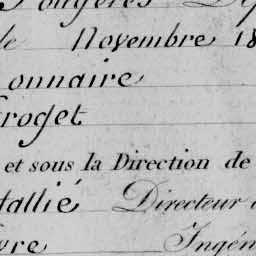 Fougères Dép
de Novembre 18
onnaire
roget
et sous la Direction de
tallié Directeur
vre Ingén